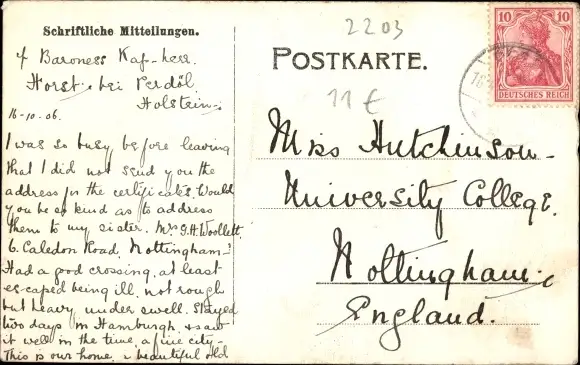 Schriftliche Mitteilungen.
c/o Baroness Kap-herr.
Horst bei Perdöl
Holstein
16-10-06.
I was so busy before leaving
that I did not send you the
address for the certificates. Would
you be so kind as to address
them to my sister. Mrs G.H. Woollett.
6. Caledon Road. Nottingham?
Had a good crossing, at least
escaped being ill, not rough
but heavy under swell. Stayed
two days in Hamburgh, & saw
it well in the time, a fine city-
This is our home, a beautiful old
2203
POSTKARTE.
11 €
Miss Hutchinson
University College.
Nottingham
England.
10 10
DEUTSCHES REICH